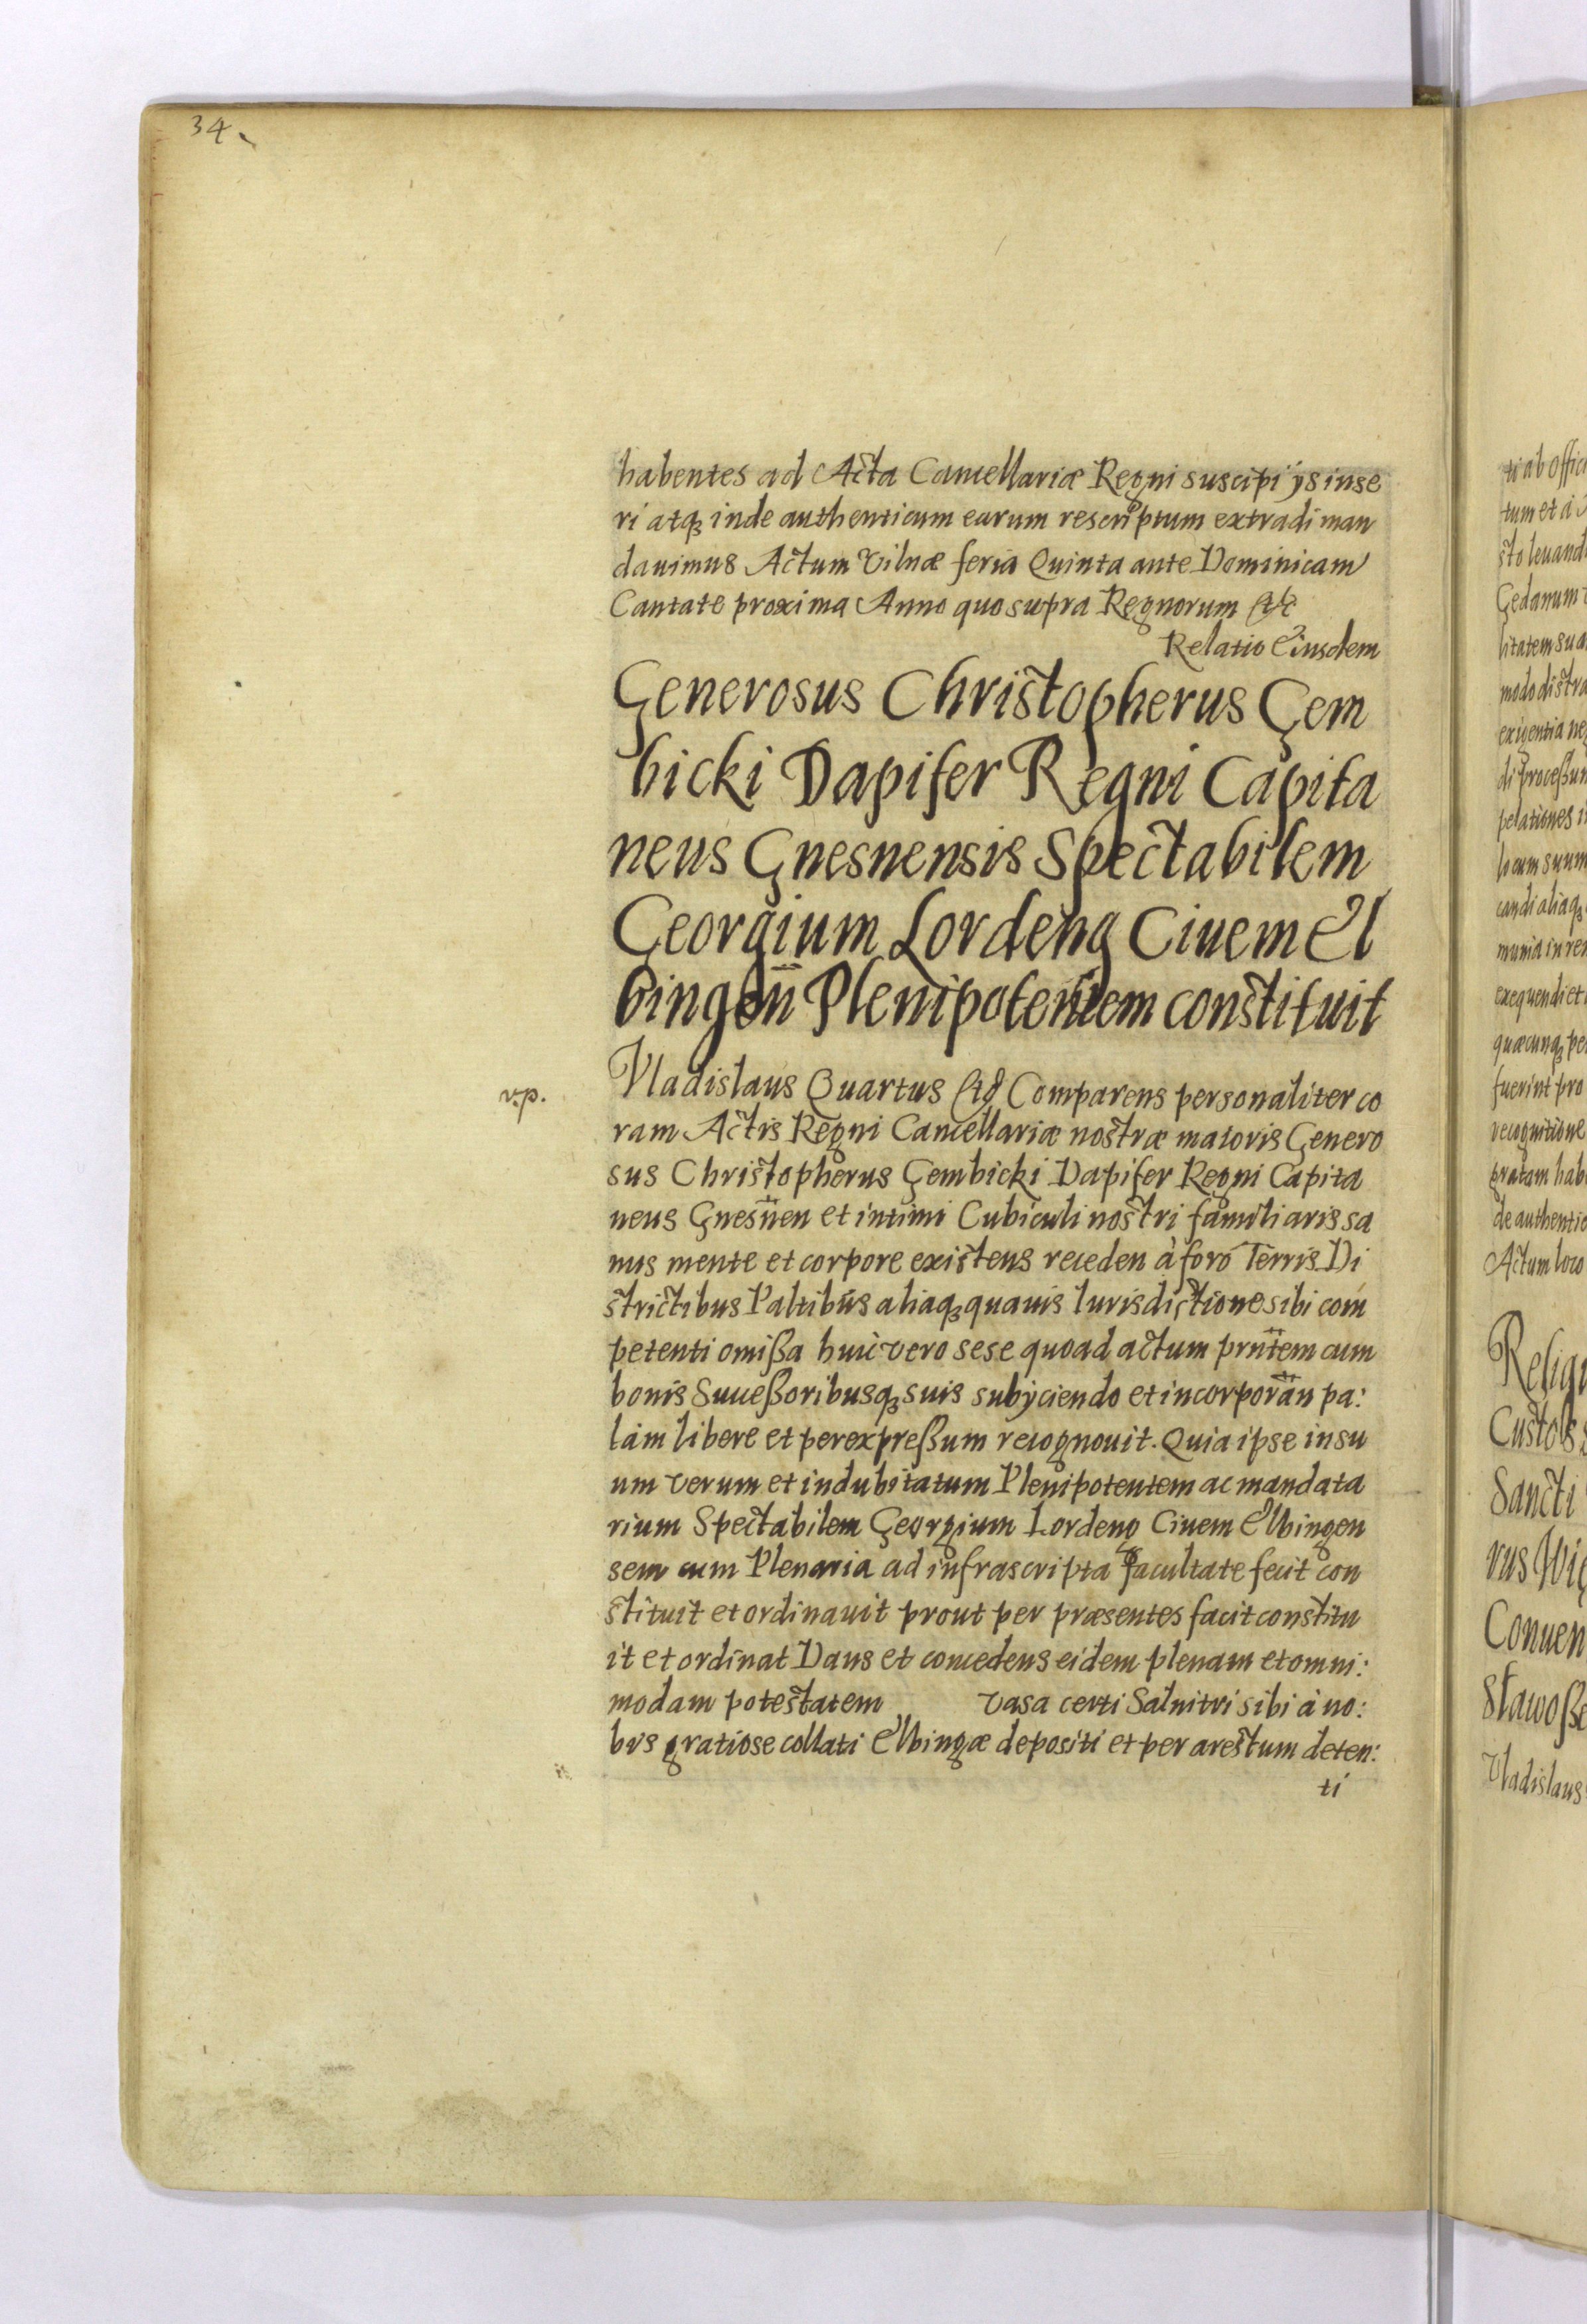 34.
habentes ad Acta Cancellariæ Regni suscipi ijs inse
ri atq₃ inde authenticum earum rescriptum extradi man
dauimus Actum Vilnæ feria Quinta ante Dominicam
Cantate proxima Anno quo supra Regnorum &c
Relatio Eiusdem
Generosus Christopherus Gem
bicki Dapifer Regni Capita
neus Gnesnensis Spectabilem
Georgium Lordeng Ciuem El
bingen̄ Plenipotentem constituit
v.p.
Vladislaus Quartus &c Comparens personaliter co
ram Actis Regni Cancellariæ nostræ maioris Genero
sus Christopherus Gembicki Dapifer Regni Capita
neus Gnesn̄en et intimi Cubiculi nostri familiaris sa
nus mente et corpore existens receden à foro Terris Di
strictibus Paltibūs aliaq₃ quauis Iurisdictione sibi com
petenti omißa huic vero sese quoad actum prn̄tem cum
bonis Succeßoribusq₃ suis subijciendo et incorporān pa:
làm libere et per expreßum recognouit. Quia ipse in su
um verum et indubitatum Plenipotentem ac mandata
rium Spectabilem Georgium Lordeng Ciuem Elbingen
sem cum Plenaria ad infrascripta facultate fecit con
stituit et ordinauit prout per præsentes facit constitu
it et ordinat Dans et concedens eidem plenam et omni:
modam potestatem vasa certi Salnitri sibi à no:
bis gratiose collati Elbingæ depositi et per arestum deten:
ti
ti ab offici
tum et à
sto leuand
Gedanum
litatem sua
modo distra
exigentia neg
di proceßum
pelationes i
locum suum
candi aliaq₃
munia in re
exequendi et
quæcunq₃ pe
fuerint pro
recognitione
gratam hab
de authentic
Actum loco
Religi
Custos
Sancti
rus Wię
Conuen
Stawoße
Vladislaus